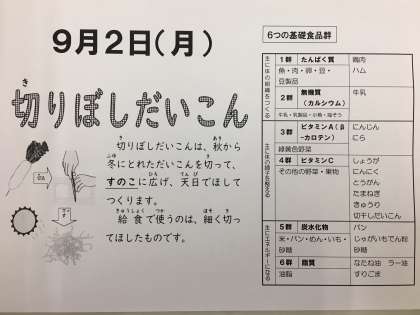 9月2日(月)
切りぼしだいこん
切りぼしだいこんは、秋から
冬にとれただいこんを切って、
すのこに広げ、天日でほして
つくります。
給食で使うのは、細く切っ
てほしたものです。
6つの基礎食品群
主に体の組織をつくる
1群 たんぱく質
魚・肉・卵・豆・
豆製品
鶏肉
ハム
2群 無機質
(カルシウム)
牛乳・乳製品・小魚・海そう
牛乳
主に体の調子を整える
3群 ビタミンA(β
-カロテン)
緑黄色野菜
にんじん
にら
4群 ビタミンC
その他の野菜・果物
しょうが
にんにく
とうがん
たまねぎ
きゅうり
切干しだいこん
主にエネルギーになる
5群 炭水化物
米・パン・めん・いも・
砂糖
パン
じゃがいもでん粉
砂糖
6群 脂質
油脂
なたね油 ラー油
すりごま